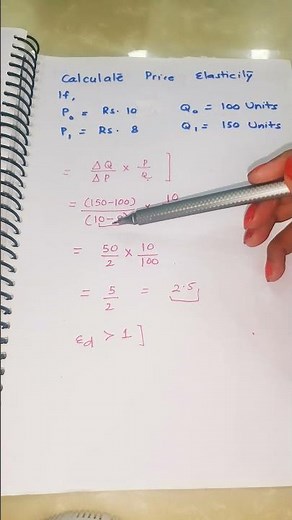 Calculate Price Elasticity
If,
P₀ = Rs. 10 Q₀ = 100 Units
P₁ = Rs. 8 Q₁ = 150 Units
= ΔQ/ΔP × P/Q ]
= (150-100)/(10- × 10
= 50/2 × 10/100
= 5/2 = 2.5
εd > 1 ]